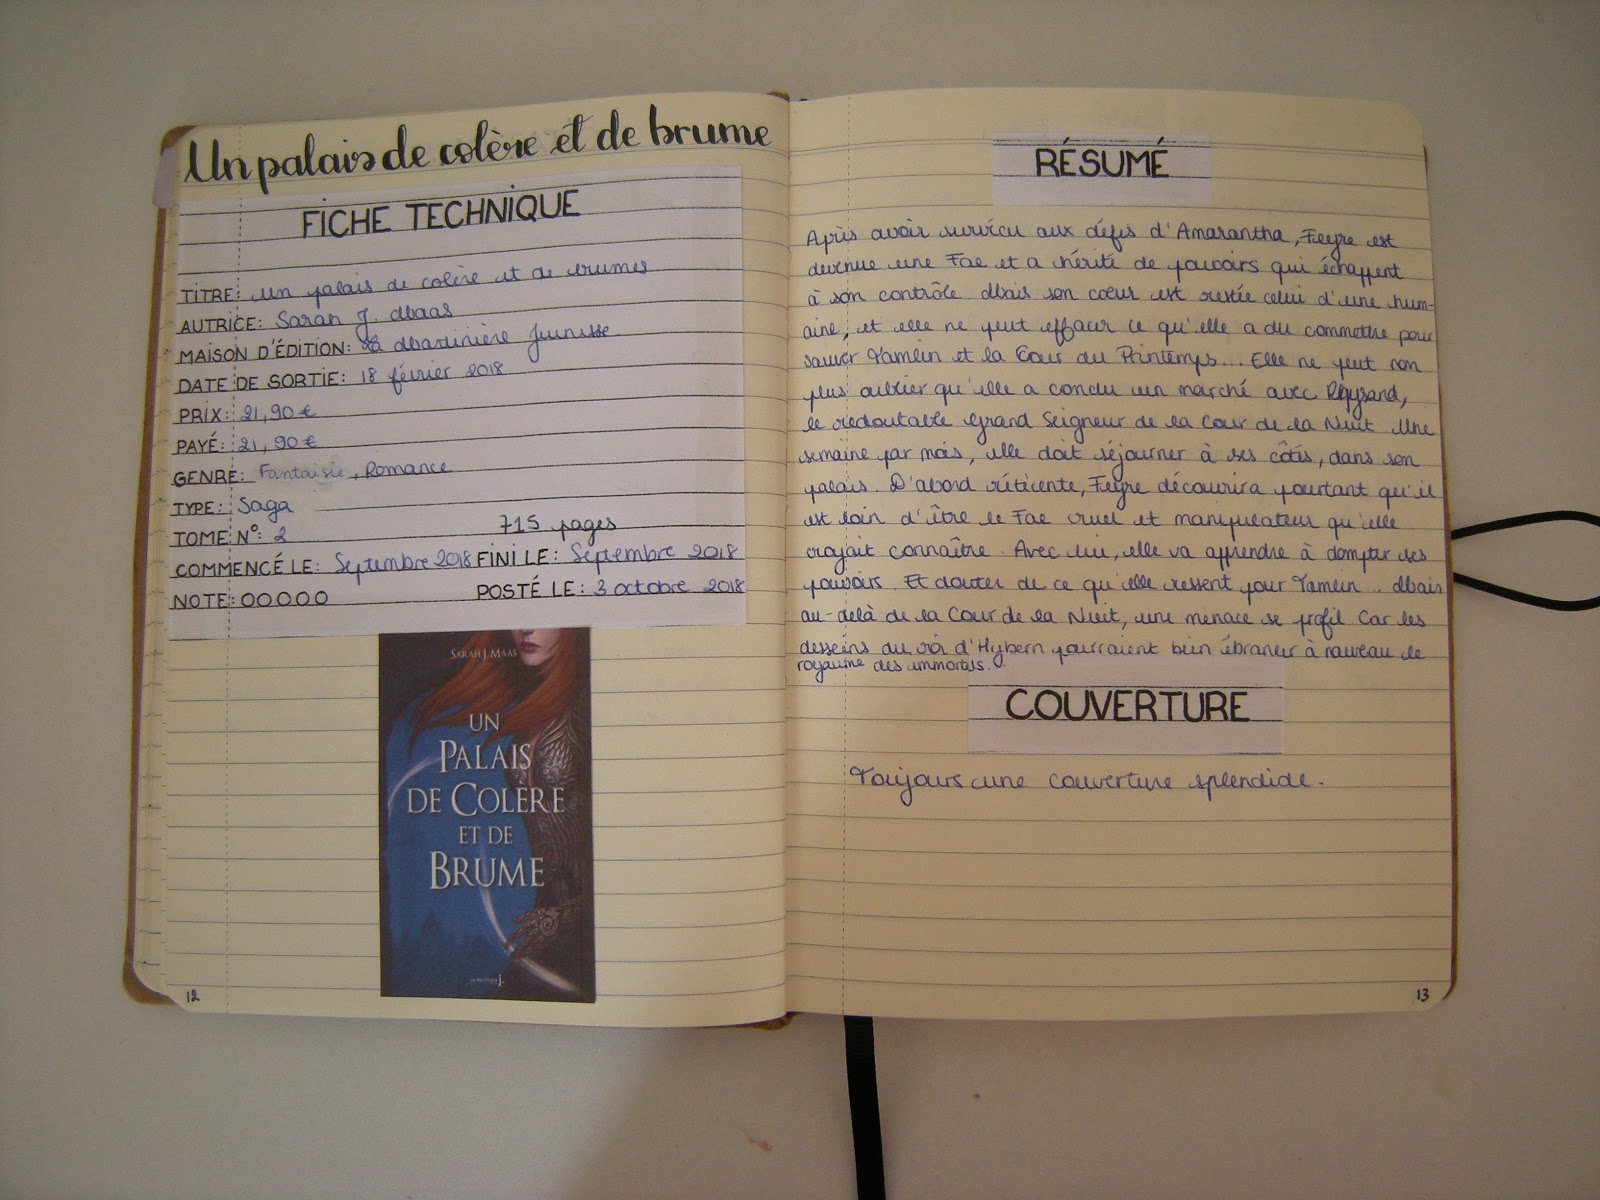 Un palais de colère et de brume
FICHE TECHNIQUE
TITRE: un palais de colère et de brumes
AUTRICE: Sarah J. Maas
MAISON D'ÉDITION: La Martinière Jeunesse
DATE DE SORTIE: 18 février 2018
PRIX: 21,90 €
PAYÉ: 21,90 €
GENRE: Fantaisie, Romance
TYPE: Saga
TOME N°: 2 715 pages
COMMENCÉ LE: Septembre 2018 FINI LE: Septembre 2018
NOTE: OOOOO POSTÉ LE: 3 octobre 2018
SARAH J. MAAS
UN
PALAIS
DE COLÈRE
ET DE
BRUME
12
RÉSUMÉ
Après avoir survécu aux défis d'Amarantha, Feyre est
devenue une Fae et a hérité de pouvoirs qui échappent
à son contrôle. Mais son cœur est restée celui d'une hum-
aine, et elle ne peut effacer ce qu'elle a du commettre pour
sauver Tamlin et la Cour du Printemps... Elle ne peut non
plus oublier qu'elle a conclu un marché avec Rhysand,
le redoutable Grand Seigneur de la Cour de la Nuit. Une
semaine par mois, elle doit séjourner à ses côtés, dans son
palais. D'abord réticente, Feyre découvrira pourtant qu'il
est loin d'être le Fae cruel et manipulateur qu'elle
croyait connaître. Avec lui, elle va apprendre à dompter ses
pouvoirs. Et douter de ce qu'elle ressent pour Tamlin... Mais
au-delà de la Cour de la Nuit, une menace se profil. Car les
desseins du roi d'Hybern pourraient bien ébranler à nouveau le
royaume des immortels.
COUVERTURE
Toujours une couverture splendide.
13